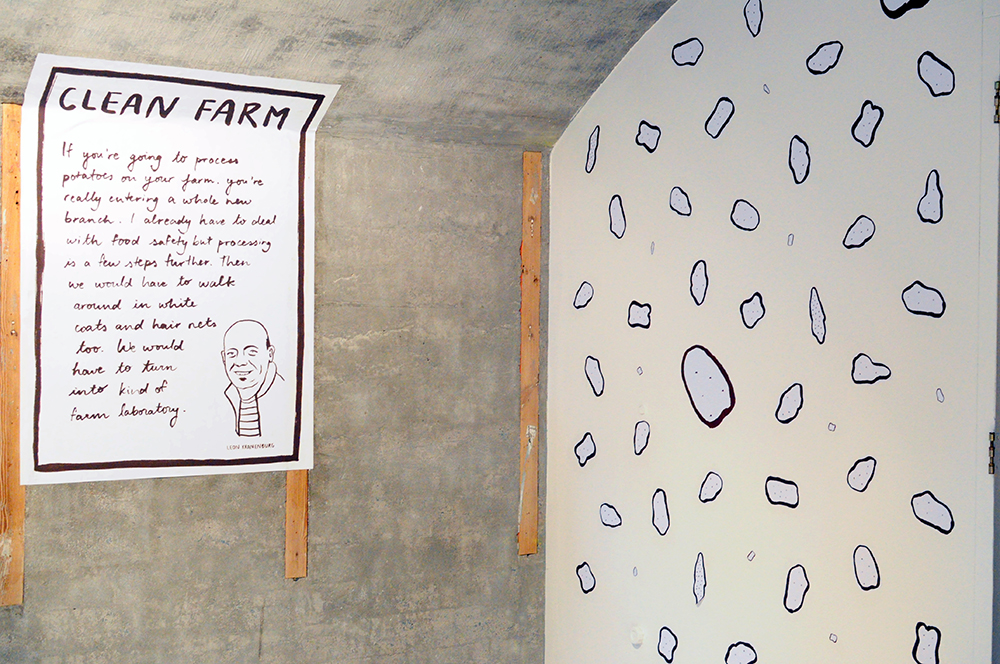 CLEAN FARM
If you're going to process
potatoes on your farm. you're
really entering a whole new
branch. I already have to deal
with food safety but processing
is a few steps further. Then
we would have to walk
around in white
coats and hair nets
too. We would
have to turn
into kind of
farm laboratory.
LEON KRANENBURG